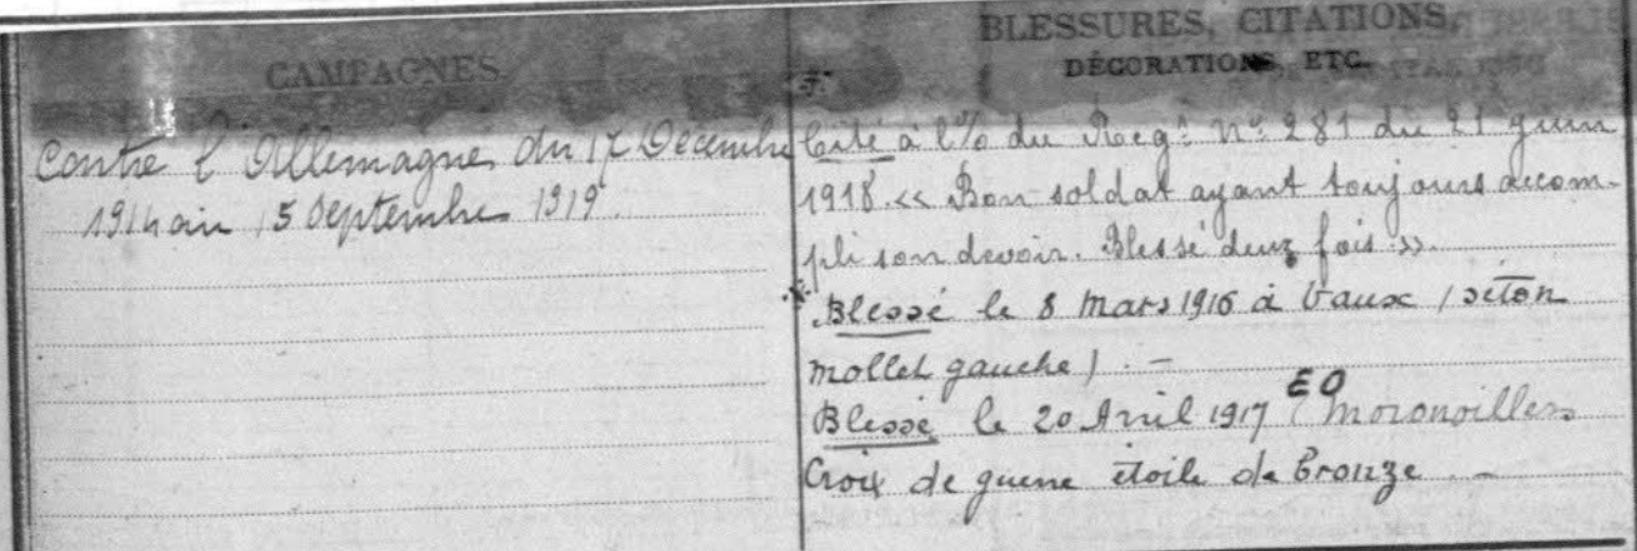 CAMPAGNES
Contre l'Allemagne du 17 Décembre
1914 au 15 Septembre 1919.
BLESSURES, CITATIONS,
DÉCORATIONS, ETC.
Cité à l'% du Reg.t N° 281 du 21 Juin
1918. « Bon soldat ayant toujours accom-
pli son devoir. Blessé deux fois ».
Blessé le 8 Mars 1916 à Vaux (séton
mollet gauche). -
Blessé le 20 Avril 1917 EO (Moronvillers
Croix de guerre étoile de bronze -